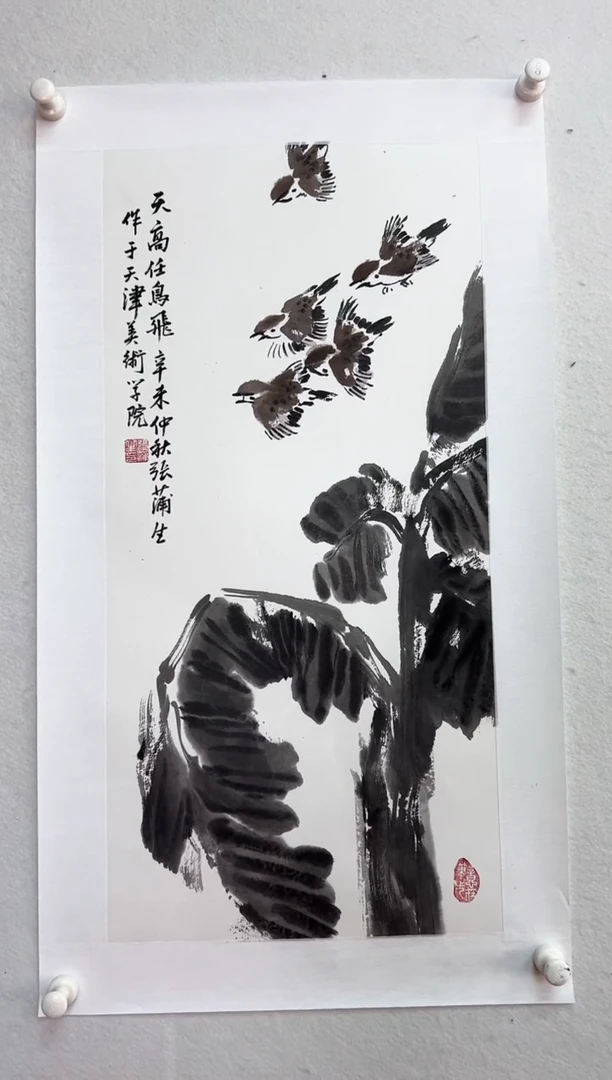 天高任鳥飛 辛未仲秋張蒲生
作于天津美術学院